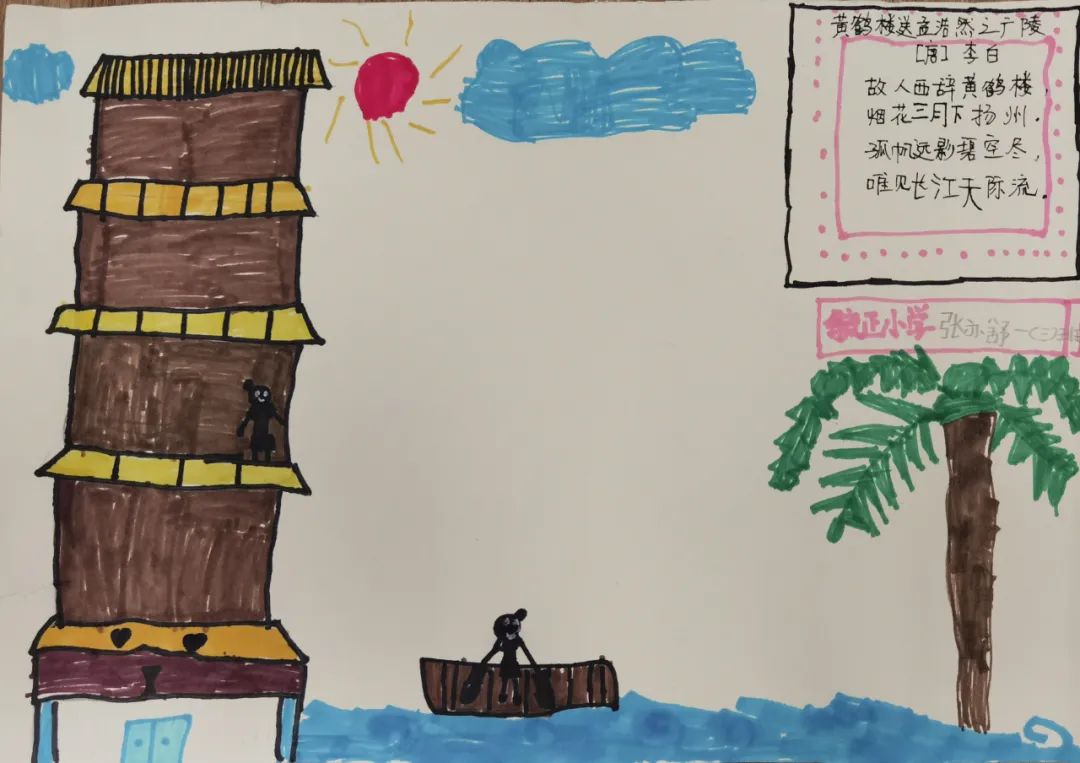 黄鹤楼送孟浩然之广陵
[唐] 李白
故人西辞黄鹤楼,
烟花三月下扬州.
孤帆远影碧空尽,
唯见长江天际流.
正小学 张亦舒 一(三)班